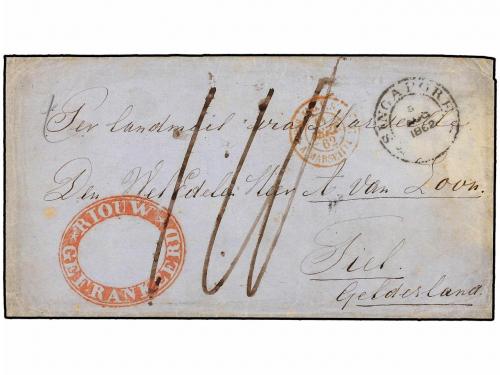 4
Per landmail via Marseille
Den WelEdelen Heer A. van Loon.
Tiel.
Gelderland.
SINGAPORE
5
AUG
1862
62
A MARSEILLE
RIOUW
GEFRANKEERD